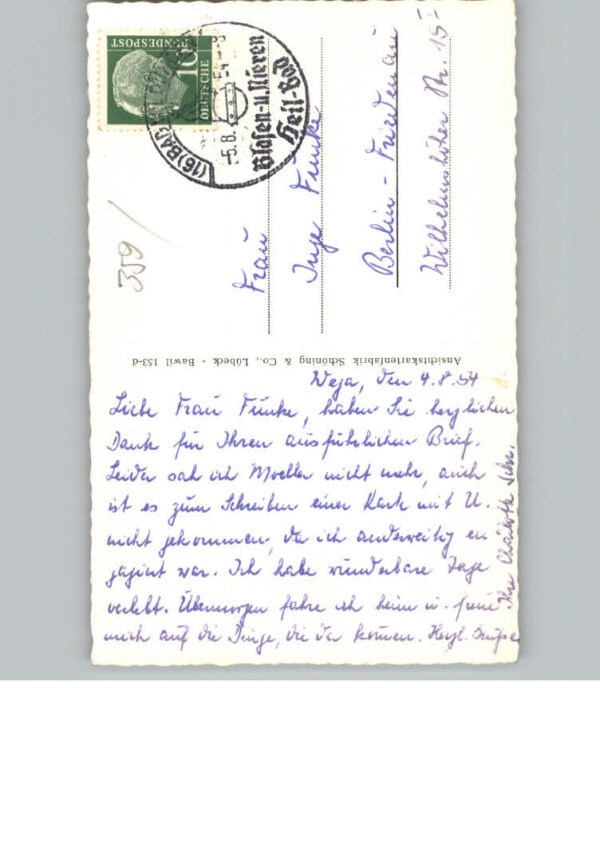 DEUTSCHE
BUNDESPOST
10
(16) BAD
-5.8.54
Blasen-u. Nieren
Heil-Bad
359
Frau
Inge Funke
Berlin-Friedenau
Wilhelmshöher Str. 15
Ansichtskartenfabrik Schöning & Co., Lübeck - Bawil 153-d
den 4.8.54
Liebe Frau Funke, haben Sie herzlichen
Dank für Ihren ausführlichen Brief.
Leider sah ich Moeller nicht mehr, auch
ist es zum Schreiben einer Karte mit U.
nicht gekommen, da ich anderweitig en
gagiert war. Ich habe wunderbare Tage
verlebt. Übermorgen fahre ich heim u. freue
mich auf die Dinge, die da kommen. Herzl. Grüße
Ihre Charlotte Schr.